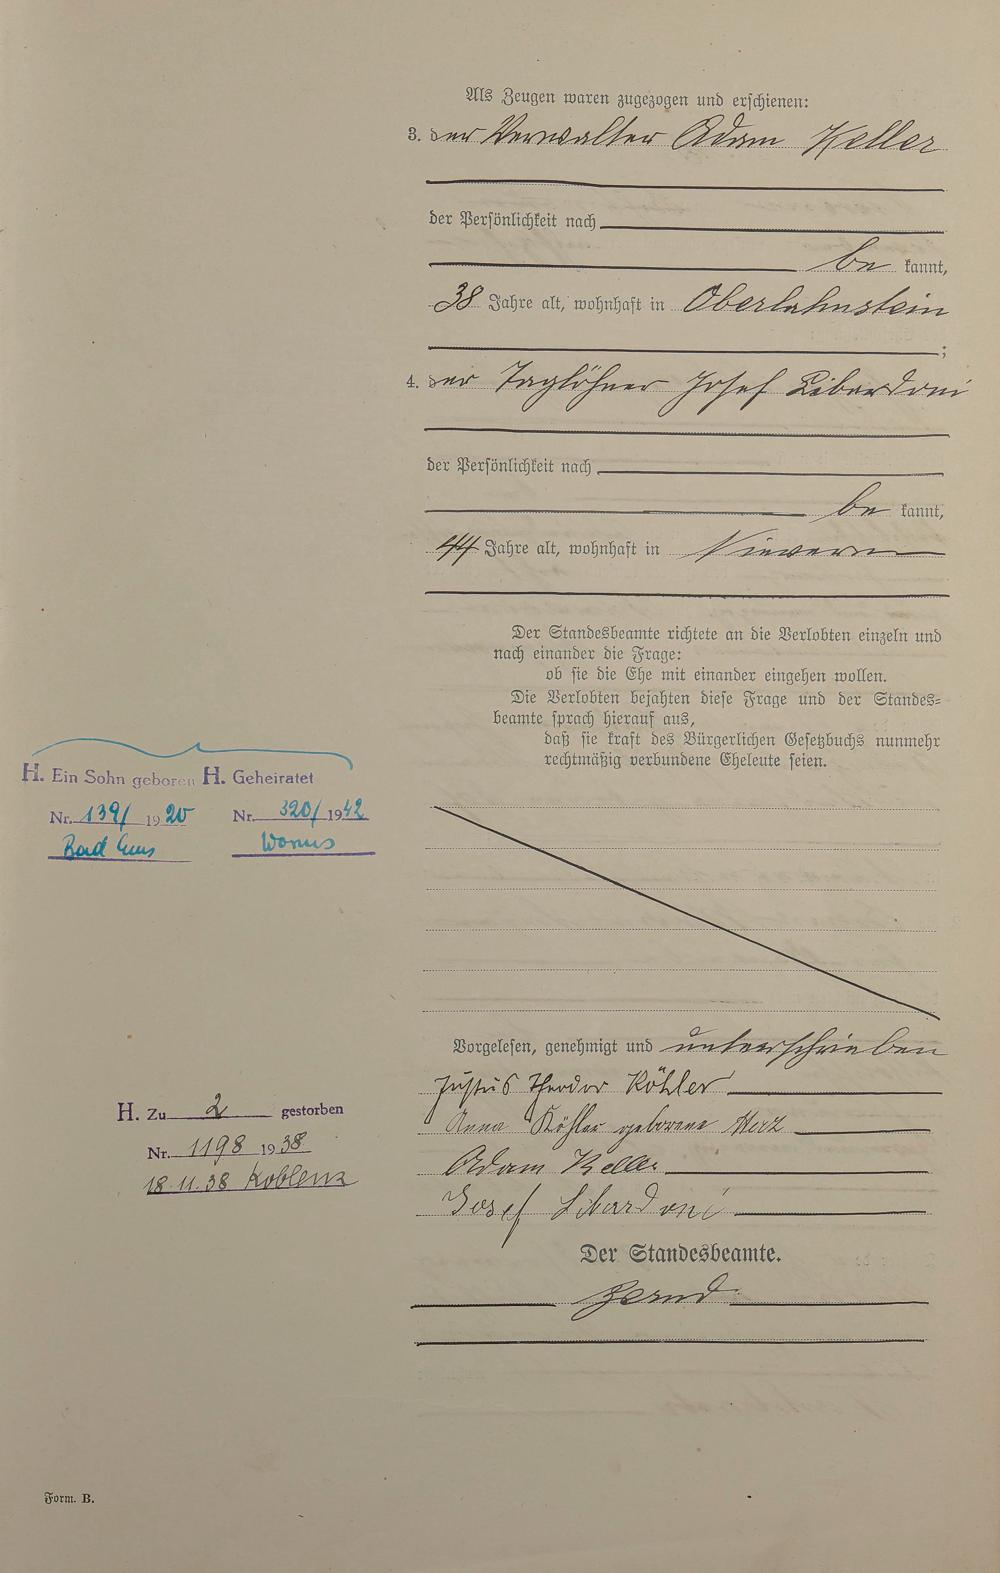 Als Zeugen waren zugezogen und erschienen:
3. der Verwalter Adam Keller
der Persönlichkeit nach
be kannt,
38 Jahre alt, wohnhaft in Oberlahnstein
;
4. der Taglöhner Josef Libardoni
der Persönlichkeit nach
be kannt,
44 Jahre alt, wohnhaft in Nievern
Der Standesbeamte richtete an die Verlobten einzeln und
nach einander die Frage:
ob sie die Ehe mit einander eingehen wollen.
Die Verlobten bejahten diese Frage und der Standes-
beamte sprach hierauf aus,
daß sie kraft des Bürgerlichen Gesetzbuchs nunmehr
rechtmäßig verbundene Eheleute seien.
H. Ein Sohn geboren H. Geheiratet
Nr. 139/ 1920 Nr. 320/ 1942
Bad Ems Worms
Vorgelesen, genehmigt und unterschrieben
Justus Theodor Köhler
Anna Köhler geborene
Adam Keller
Josef Libardoni
H. Zu 2 gestorben
Nr. 1198 1938
18.11.38 Koblenz
Der Standesbeamte.
Form. B.